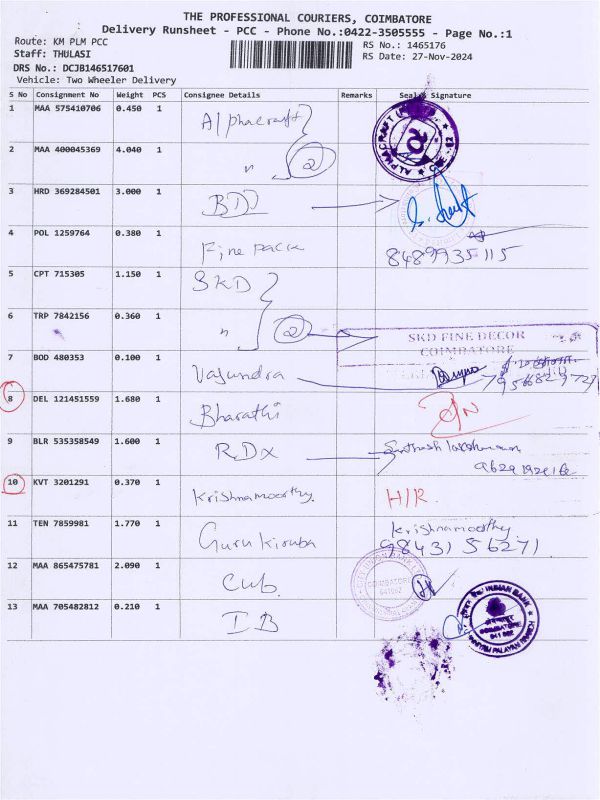 THE PROFESSIONAL COURIERS, COIMBATORE
Delivery Runsheet - PCC - Phone No.:0422-3505555 - Page No.:1
Route: KM PLM PCC
RS No.: 1465176
Staff: THULASI
RS Date: 27-Nov-2024
DRS No.: DCJB146517601
Vehicle: Two Wheeler Delivery
S No Consignment No Weight PCS Consignee Details Remarks Seal & Signature
1 MAA 575410706 0.450 1 Alphacraft
ALPHACRAFT
2 MAA 400045369 4.040 1 " 2
3 HRD 369284501 3.000 1
4 POL 1259764 0.380 1 Fine pack 8489935115
5 CPT 715305 1.150 1 SKD
6 TRP 7842156 0.360 1 " 2
SKD FINE DECOR
COIMBATORE
7 BOD 480353 0.100 1 Vasundra
8 DEL 121451559 1.680 1 Bharathi
9 BLR 535358549 1.600 1 RDX
10 KVT 3201291 0.370 1 Krishnamoorthy. H/R.
11 TEN 7859981 1.770 1 Gurukiruba Krishnamoorthy
9843156271
12 MAA 865475781 2.090 1 Cub.
COIMBATORE
641062
13 MAA 705482812 0.210 1 IB
INDIAN BANK
COIMBATORE
641 062